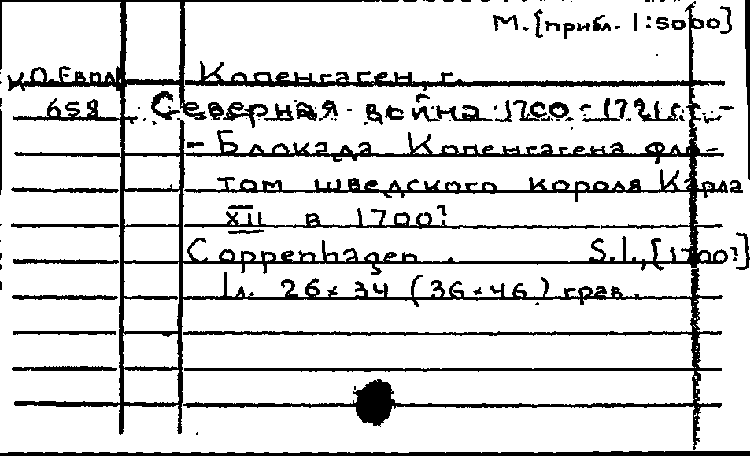 М. [прибл. 1:5000]
К.О.Евпл Копенгаген, г.
658 Северная война 1700-1721 гг. -
- Блокада Копенгагена фло-
том шведского короля Карла
XII в 1700?
Coppenhagen . S.l., [1700?]
1л. 26×34 (36×46) грав.